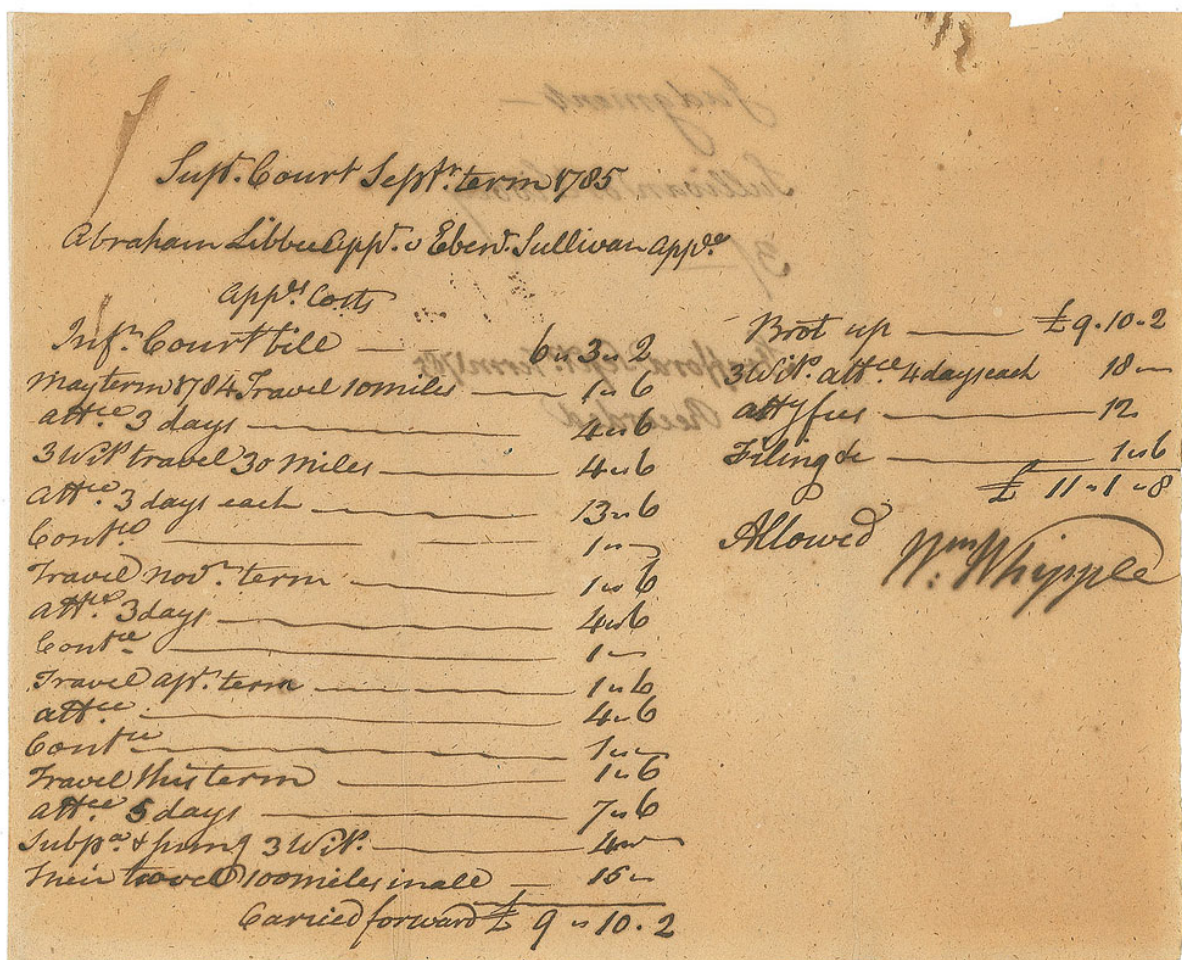 Supr. Court Septr. term 1785
Abraham Libbee appt. v Ebenr. Sullivan appee
appees Costs
Infr. Court bill — 6 " 3 " 2
May term 1784 Travel 10 miles — 1 " 6
attce. 3 days — 4 " 6
3 Wits travel 30 miles — 4 " 6
attce. 3 days each — 13 " 6
Contce — 1 " —
Travel novr. term — 1 " 6
attce. 3 days — 4 " 6
Contce — 1 " —
Travel apr. term — 1 " 6
attce. — 4 " 6
Contce — 1 " —
Travel this term — 1 " 6
attce. 5 days — 7 " 6
Subpa. & 3 Wits. — 4 " —
Their travel 100 miles in all — 15 " —
Carried forward £ 9 " 10 . 2
Brot up — £ 9 . 10 . 2
3 Wits. attce. 4 days each 18 " —
atty fees — 12
Filing &c — 1 " 6
£ 11 " 1 " 8
Allowed
Wm: Whipple
Judgment —
Sullivan v Libbey
3/
Strafford Sepr. Term 1785
Recorded